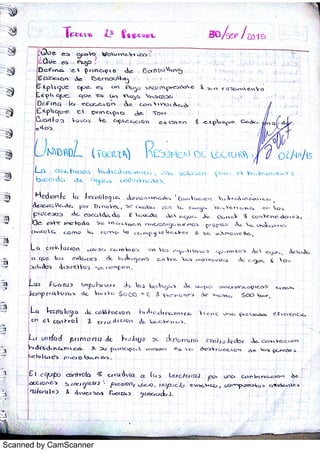 Teoria 2º Parcial 30/sep/2015
¿Que es gasto Volumetrico?
¿Que es Flujo?
Defina el principio de Bernoulling
Ecuacion de Bernoulling
Explique que es un Flujo incompresible & sin rozamiento
Explique que es un Flujo viscoso
Defina la ecuacion de continuidad
Explique el principio de Torr
Cuantos tubos de aplicacion existen & explique cada
ellos.
UNIDAD 2 (FUERZA) RESUMEN DE LECTURA 02/10/15
La cavitacion hidrodinamica, una solucion para el tratamiento
biocida de agua industriales.
Mediante la tecnologia denominada Cavitacion hidrodinamica,
desarrollada por Dinatec, se reduce la carga bacteriana en los
procesos de escaldado & lavado del agua de canal & contenedores.
De este metodo se inactivan microorganismos propios de la industria
carnica como la campylobacter & la salmonella.
La cavitacion causa cambios en los equilibrios quimicos del agua, debido
a que los enlaces de hidrogeno entre las moleculas de agua & los
solidos disueltos se rompen.
Las Fuerzas impulsivas de las burbujas de vapor microscopicas crean
temperaturas de hasta 5000 °C & presiones de hasta 500 bar,
La tecnologia de cavitacion hidrodinamica tiene una probada eficiencia
en el control & erradicacion de bacterias.
La unidad primaria de trabajo se denomina controlador de cavitacion
hidrodinamica & su principal mision es la destruccion de las paredes
celulares microbianas.
El equipo controla & erradica a las bacterias por una combinacion de
acciones sinergicas: presion, vacio, impacto cinetico, compuestos oxidantes
naturales & diversas Fuerzas generadas.
Scanned by CamScanner